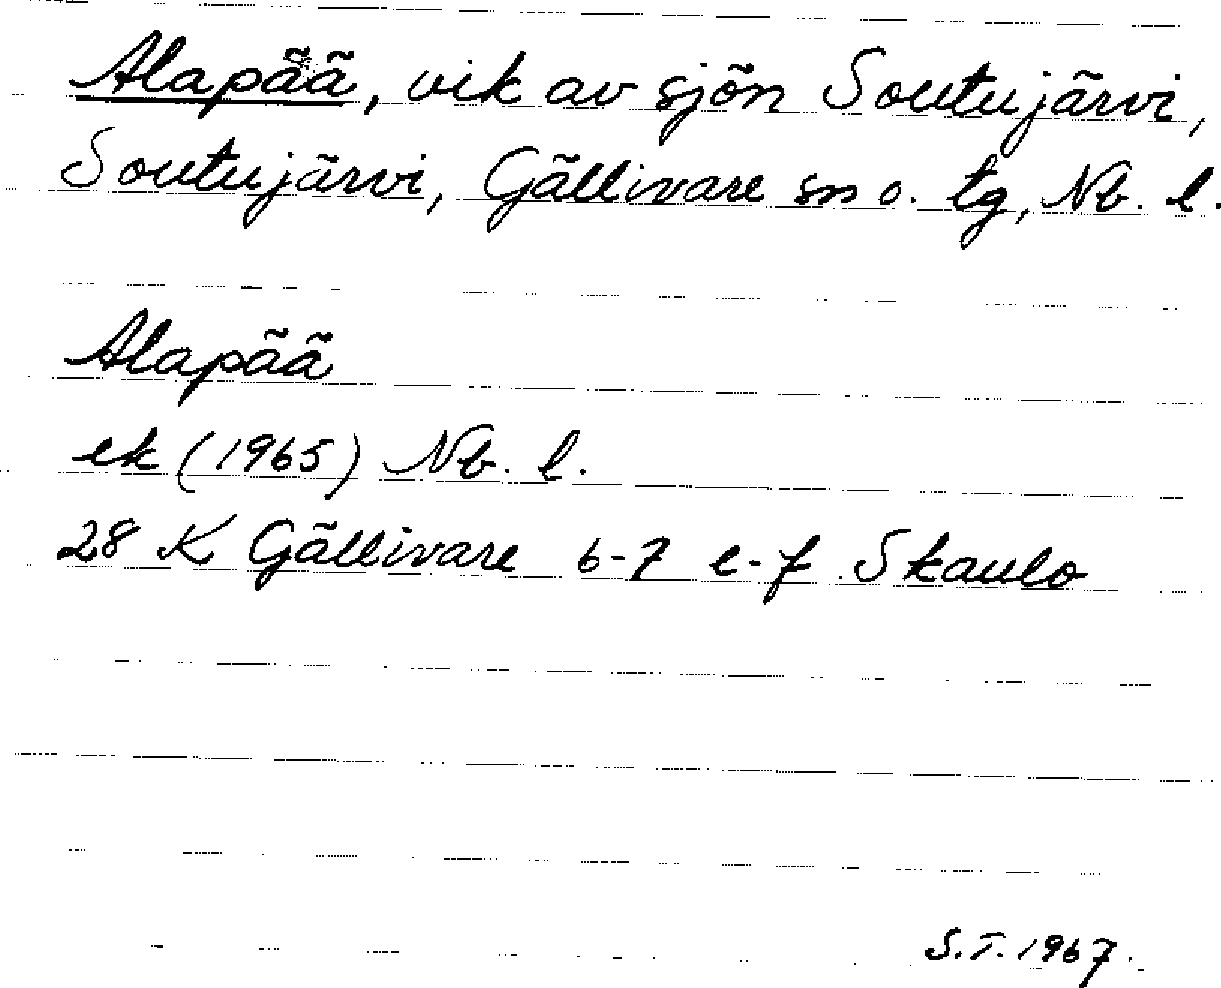 Alapää, vik av sjön Soutujärvi,
Soutujärvi, Gällivare sn o. tg, Nb. l.
Alapää
ek (1965) Nb. l.
28 K Gällivare 6-7 e-f Skaulo
S.T. 1967.